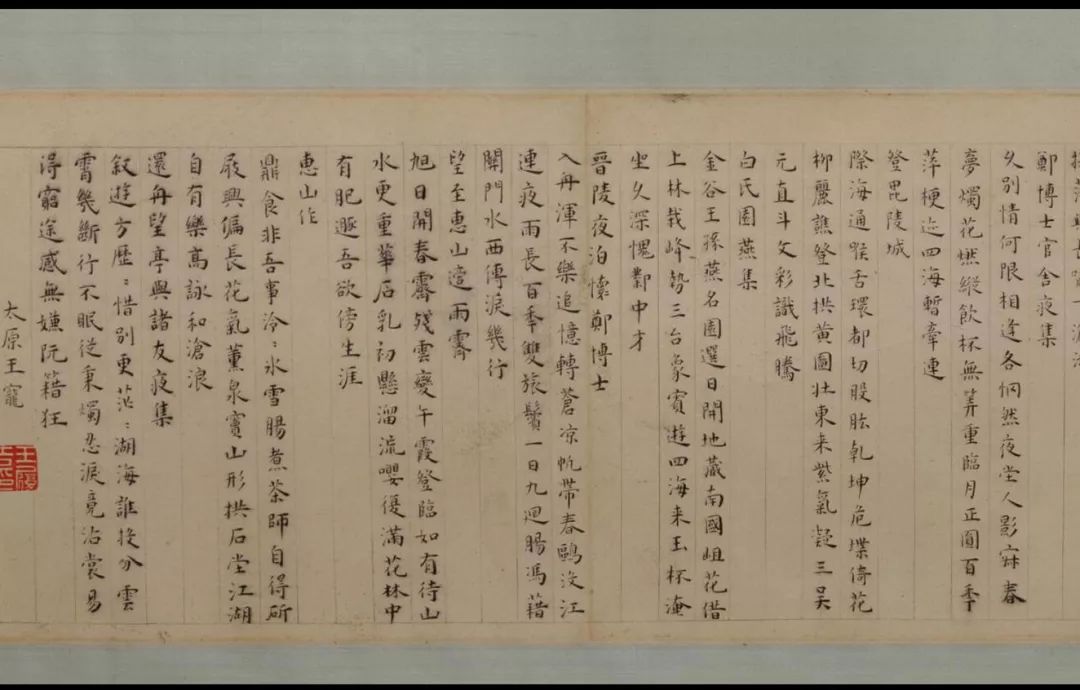 鄭博士官舍夜集
久別情何限相逢各惘然夜堂人影寂春
夢燭花燃縱飲杯無算重臨月正圓百年
萍梗迹四海暫牽連
登毘陵城
際海通喉舌環都切股肱乾坤危堞倚花
柳麗譙登北拱黃圖壯東来紫氣凝三吳
元直斗文彩識飛騰
白氏園燕集
金谷王孫燕名園選日開地藏南國岨花借
上林栽峰勢三台象賓遊四海来玉杯淹
坐久深愧鄴中才
晉陵夜泊懷鄭博士
入舟渾不樂追憶轉蒼凉帆帶春鷗沒江
連夜雨長百年雙旅鬢一日九迴腸馮藉
關門水西傳淚幾行
望至惠山遶雨霽
旭日開春霽殘雲變午霞登臨如有待山
水更重華石乳初懸溜流嚶復滿花林中
有肥遯吾欲傍生涯
惠山作
鼎食非吾事泠:氷雪腸煮茶師自得斫
屐興偏長花氣薰泉竇山形拱石堂江湖
自有樂高詠和滄浪
還舟望亭與諸友夜集
叙遊方歷:惜别更茫:湖海誰投分雲
霄幾斷行不眠從秉燭忍淚竟沾裳易
得窮途感無嫌阮籍狂
太原王寵